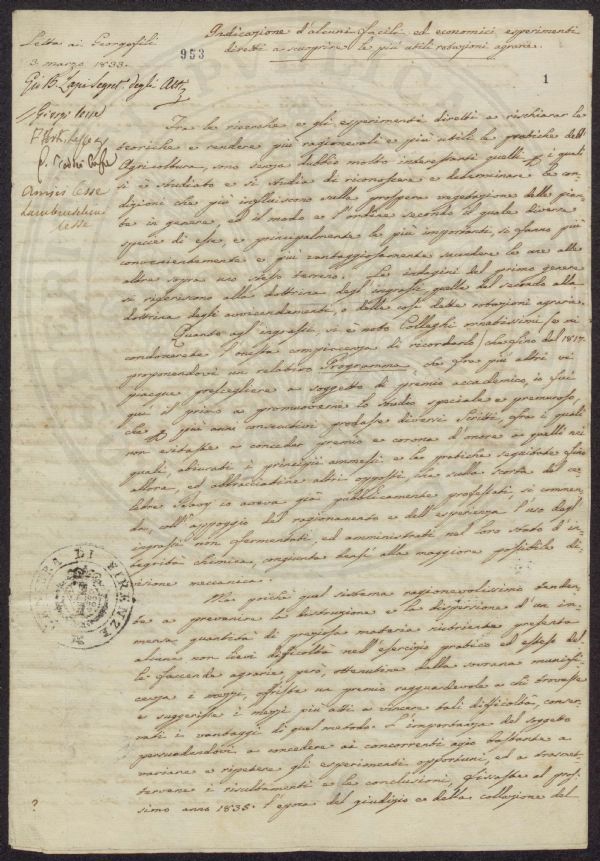 Indicazione d'alcuni facili, ed economici esperimenti
diretti a scuoprire le più utili rotazioni agrarie.
Letta ai Georgofili
3 marzo 1833.
953
1
Tra le ricerche e gli esperimenti diretti a rischiarar le
teoriche e rendere più ragionevoli e più utili le pratiche dell'
Agricoltura, sono senza dubbio molto interessanti quelli p. i quali
si è studiato e si studia di riconoscere e determinare le con-
dizioni che più influiscono sulla prospera vegetazione delle pian-
te in genere, ed il modo e l'ordine secondo il quale diverse
specie di esse, e principalmente le più importanti, si fanno più
convenientemente e più vantaggiosamente succedere le une alle
altre sopra uno stesso terreno. Le indagini del primo genere
si riferiscono alla dottrina degl'ingrassi, quelle del secondo alla
dottrina degli avvicendamenti, o delle così dette rotazioni agrarie.
Quanto agl'ingrassi, vi è noto Colleghi ornatissimi (e vi
condonerete l'onesta compiacenza di ricordarlo) che fino dal 1817.
proponendovi un relativo Programma, che fra più altri vi
piacque prescegliere a soggetto di premio accademico, io fui
qui il primo a promuoverne lo studio speciale e premuroso,
che p. più anni consecutivi produsse diversi scritti, fra i quali
non esitaste a conceder premio e corona d'onore a quelli nei
quali, abiurati i principii ammessi e le pratiche seguitate fino
allora, ed abbracciatine altri opposti, che sulla scorta del ce-
lebre Gazzeri io aveva già pubblicamente professati, si commen-
da, coll'appoggio del ragionamento e dell'esperienza l'uso degl'
ingrassi non fermentati, ed amministrati nel loro stato d'in-
tegrità chimica, congiunta bensì alla maggiore possibile di-
visione meccanica.
Ma poichè quel sistema ragionevolissimo tenden-
te a prevenire la distruzione e la dispersione d'un im-
mensa quantità di preziosa materia nutriente presenta
alcune non lievi difficoltà nell'esercizio pratico ed esteso del-
le faccende agrarie, però, ottenutine dalla sovrana munifi-
cenza i mezzi, offriste un premio ragguardevole a chi trovasse
e suggerisse i mezzi più atti a vincere tali difficoltà, conser-
vati i vantaggi di quel metodo. L'importanza del soggetto
persuadendovi a concedere ai concorrenti agio bastante a
variare e ripetere gli esperimenti opportuni, ed a trasmet-
tervene i resultamenti e le conclusioni, fissaste al pros-
simo anno 1835. l'epoca del giudizio e della collazione del
DI FIRENZE
?